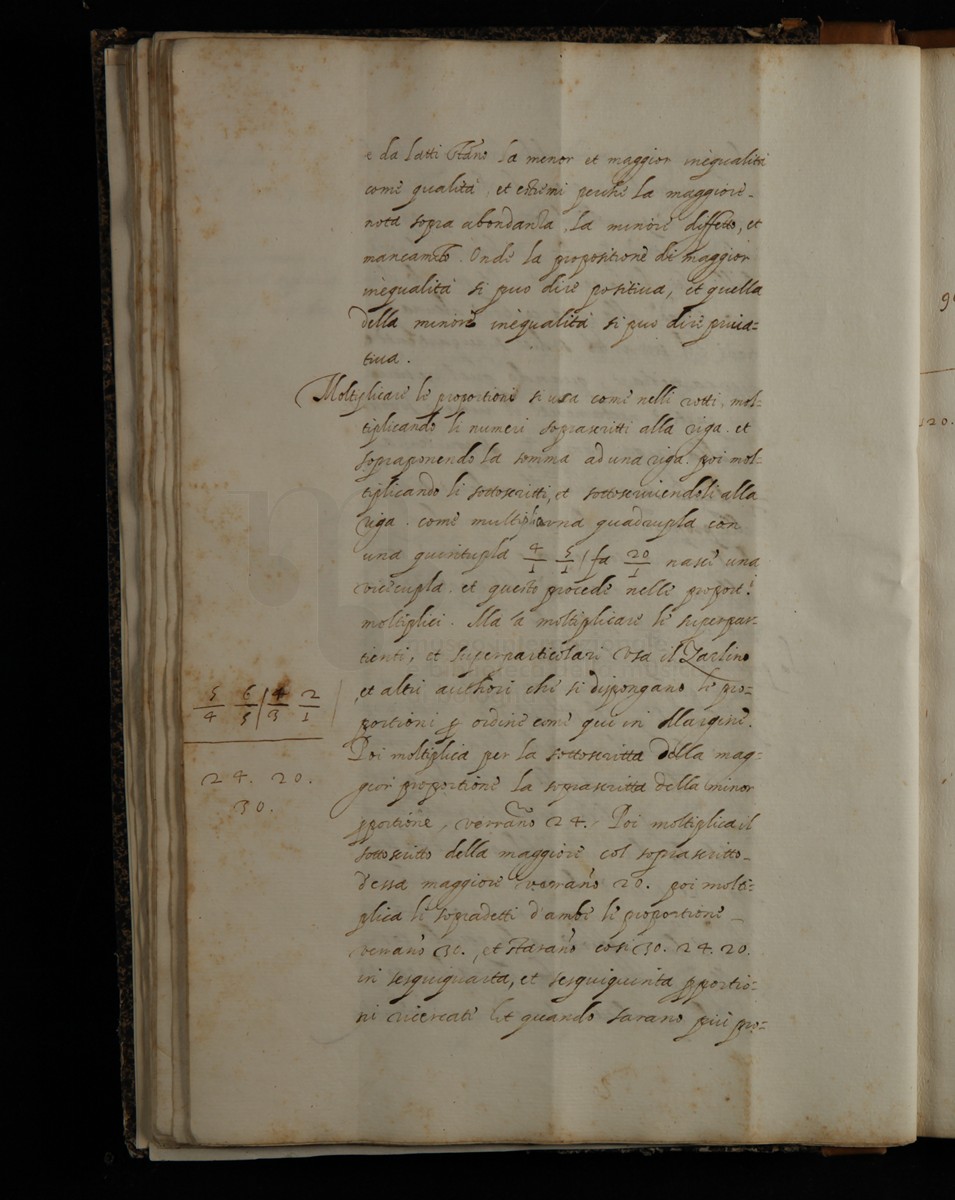 e da latti stano la menor et maggior inequalità
come qualità, et estremi perche la maggiore
nota sopra abondanza, la minore diffetto, et
mancamto. Onde la propositione di maggior
inequalità si puo dire positiua, et quella
della minore inequalità si puo dire priua=
tiua.
Moltiplicare le proportioni si usa come nelli rotti, mol=
tiplicando li numeri soprascritti alla riga. et
sopraponendo la somma ad una riga. poi mol=
tiplicando li sottoscritti, et sottoscriuendoli alla
riga. come multiplicar una quadrupla con
una quintupla 4/1 5/1 / fa 20/1 nasce una
vicecupla. et questo procede nelle proport.i
moltiplici. Ma a moltiplicare le superpar=
tienti, et superparticolari usa il Zarlino
et altri authori che si dispongano le pro=
portioni p ordine come qui in Margine.
5/4 6/5 / 4/3 2/1
24. 20.
30.
Poi moltiplica per la sottoscritta della mag=
gior proportione la soprascritta della minor
pportione, verrano 24. Poi moltiplica il
sottoscritto della maggiore col soprascritto
d'essa maggiore verrano 20. poi molti=
plica li sopradetti d'ambe le proportioni
verrano 30., et starano cosi 30. 24. 20.
in sesquiquarta, et sesquiquinta pportio=
ni ricercate Et quando sarano più pro=
9
20.